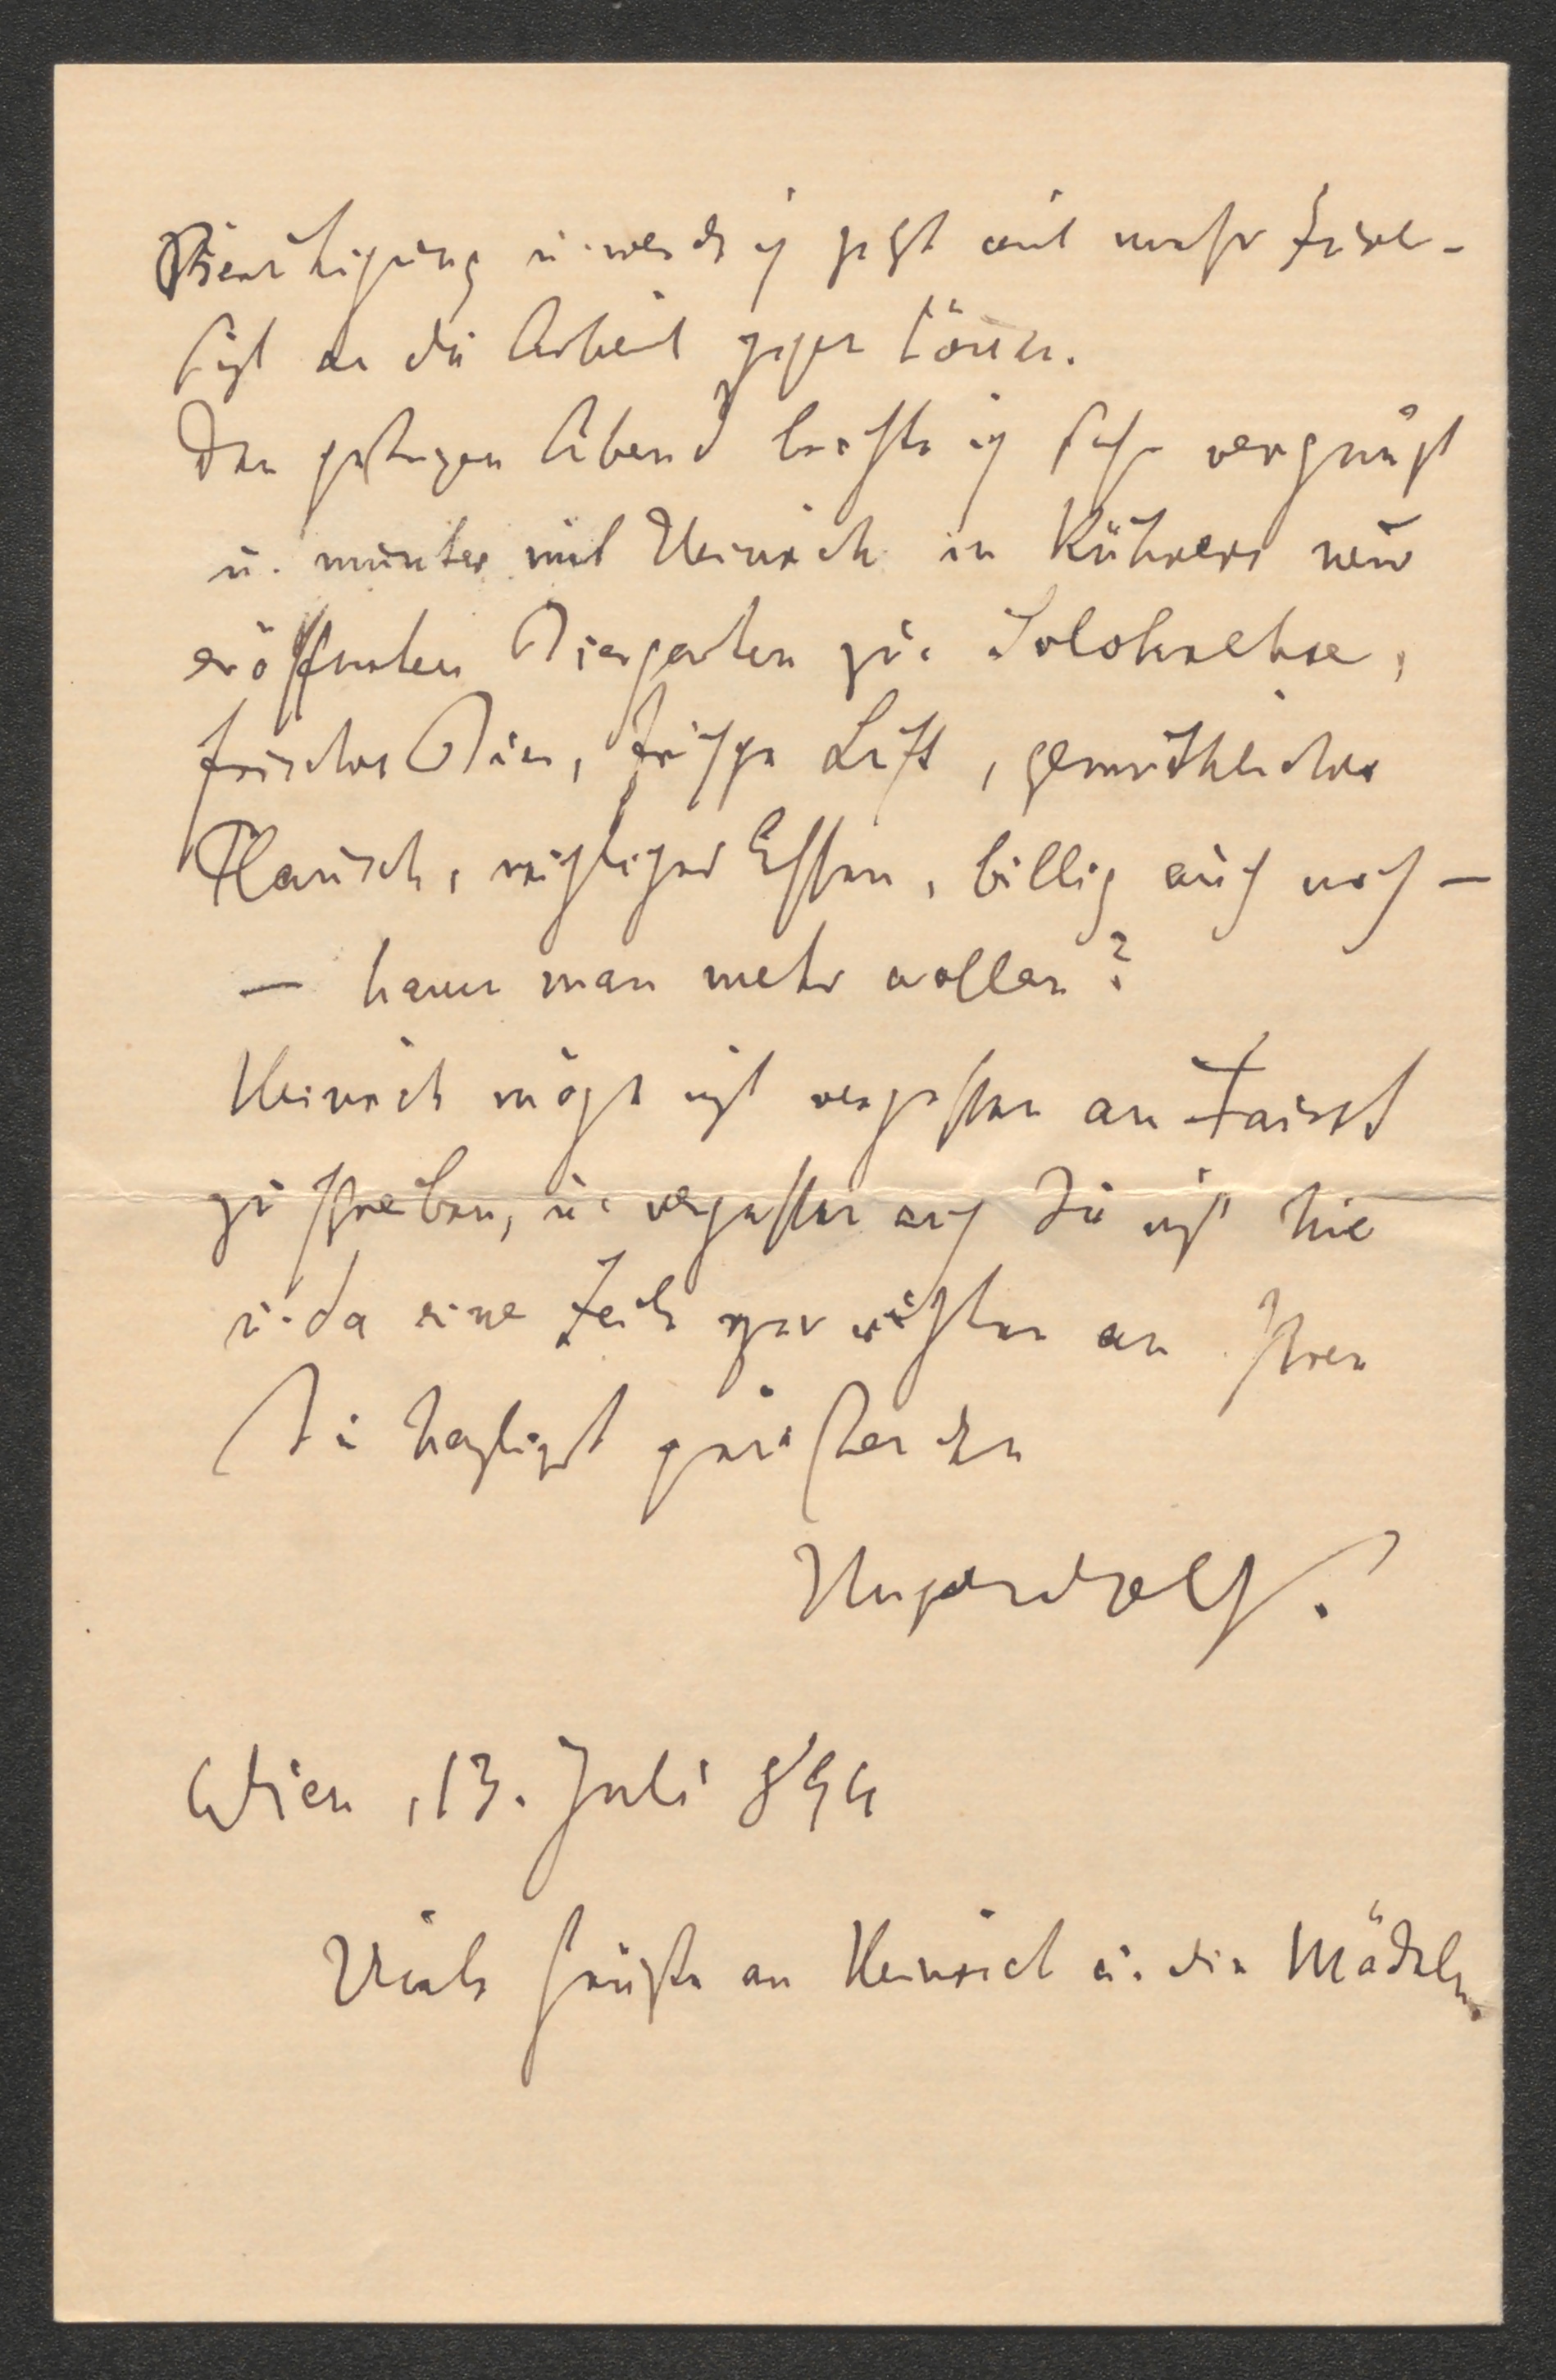 Beruhigung u. werde ich jetzt mit mehr Zuver-
sicht an die Arbeit gehen können.
Den gestrigen Abend brachte ich sehr vergnügt
u. munter mit Heinrich in Kührers neu
eröffneten Biergarten zu.
frisches Bier, frische Luft, gemüthlicher
Plausch, reichliches Essen, billig auch noch —
— kann man mehr wollen?
Heinrich möge nicht vergessen an Faisst
zu schreiben, u. vergessen auch Sie nicht hie
u. da eine Zeile zu richten an Ihren
Sie herzlichst grüßenden
Hugo Wolf.
Wien, 13. Juli 894
Viele Grüße an Heinrich u. die Mädeln.